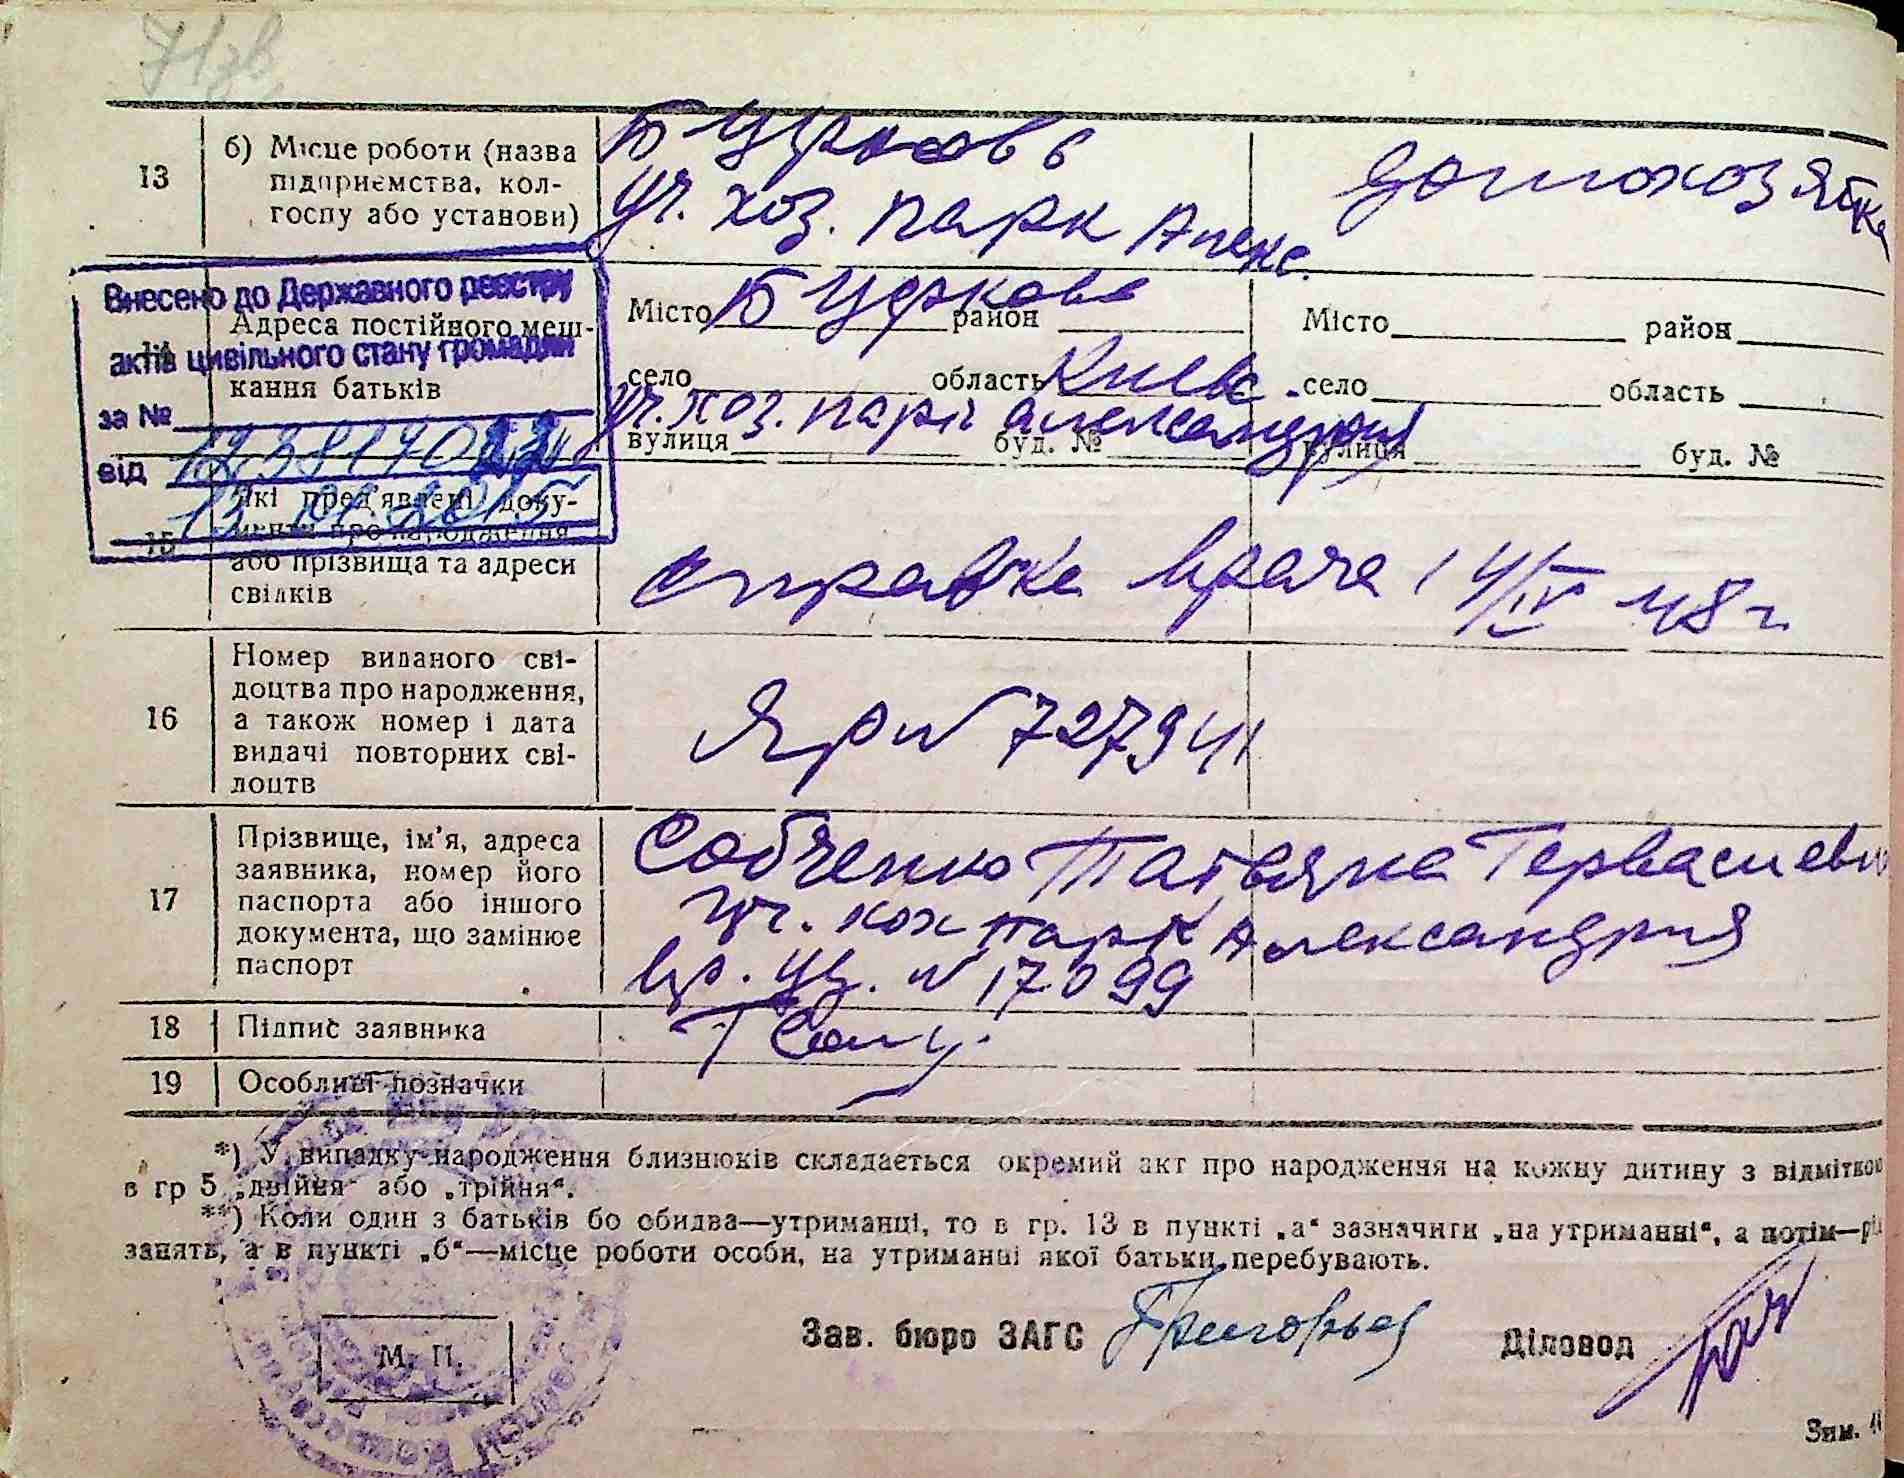 13
б) Місце роботи (назва
підприємства, кол-
госпу або установи)
Б Церковь
уч. хоз. парк Алекс.
домохозяйка
Внесено до Державного реєстру
актів цивільного стану громадян
за №
від
Адреса постійного меш-
кання батьків
Місто Б Церковь район
село область Киевс.
уч. хоз. парк Александрия
вулиця буд. №
Місто район
село область
вулиця буд. №
15
Які пред'явлені доку-
менти про народження
або прізвища та адреси
свідків
справка врача 14/IV 48 г
16
Номер виданого сві-
доцтва про народження,
а також номер і дата
видачі повторних сві-
доцтв
ЯР № 727941
17
Прізвище, ім'я, адреса
заявника, номер його
паспорта або іншого
документа, що замінює
паспорт
Собченко Татьяна Гервасиевн
уч. хоз парк Александрия
вр. уд. № 17099
18
Підпис заявника
19
Особливі позначки
*) У випадку народження близнюків складається окремий акт про народження на кожну дитину з відміткою
в гр 5 „двійня“ або „трійня“.
**) Коли один з батьків бо обидва—утриманці, то в гр. 13 в пункті „а“ зазначити „на утриманні“, а потім—рід
занять, а в пункті „б“—місце роботи особи, на утриманні якої батьки перебувають.
М. П.
Зав. бюро ЗАГС
Діловод
Зим.